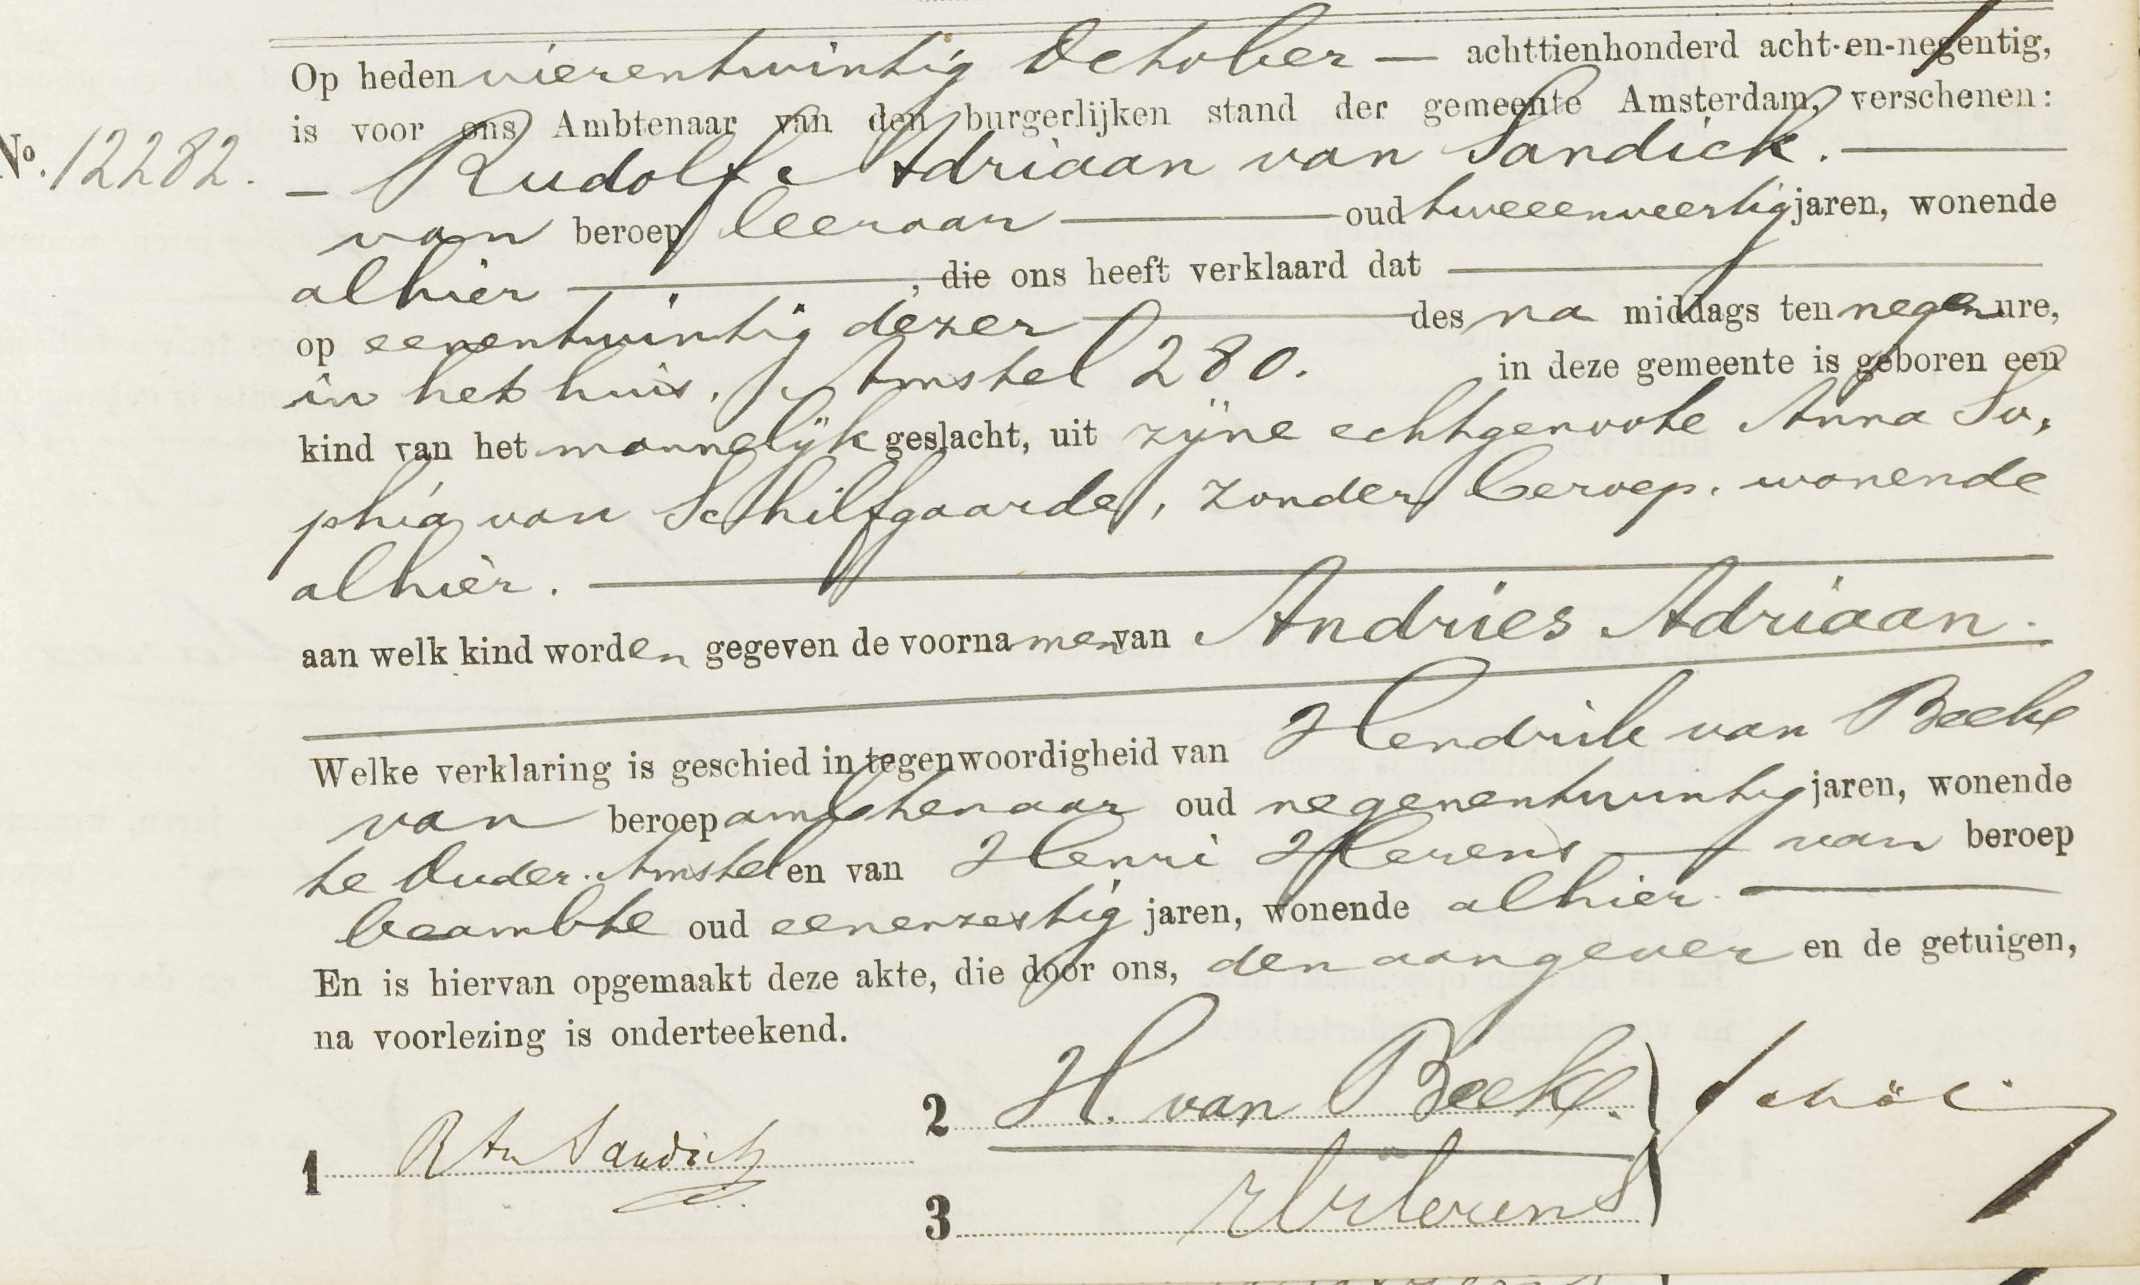 Op heden vierentwintig October — achttienhonderd acht-en-negentig,
is voor ons Ambtenaar van den burgerlijken stand der gemeente Amsterdam, verschenen:
No. 12282. — Rudolf Adriaan van Sandick. —
van beroep leeraar — oud tweeenveertig jaren, wonende
alhier —, die ons heeft verklaard dat —
op eenentwintig dezer — des na middags ten negen ure,
in het huis, Amstel 280. in deze gemeente is geboren een
kind van het mannelijk geslacht, uit zijne echtgenoote Anna So,
phia van Schilfgaarde, zonder beroep, wonende
alhier. —
aan welk kind worden gegeven de voornamen van Andries Adriaan.
Welke verklaring is geschied in tegenwoordigheid van Hendrik van Beek
van beroep ambtenaar oud negenentwintig jaren, wonende
te Ouder-Amstel en van Henri Herens — van beroep
beambte oud eenenzestig jaren, wonende alhier. —
En is hiervan opgemaakt deze akte, die door ons, den aangever en de getuigen,
na voorlezing is onderteekend.
2 H. van Beek.
1 R A v Sandick
3